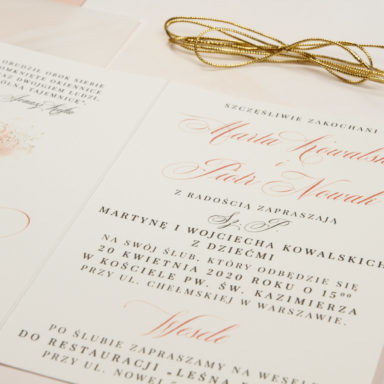 OBUDZIŁ OBOK SIEBIE
OMKNIĘTE OKIENNICE
RAZ DWOJGIEM LUDZI,
ÓLNA TAJEMNICE."
SZCZĘŚLIWIE ZAKOCHANI
Marta Kowalska
i
Piotr Nowak
Z RADOŚCIĄ ZAPRASZAJĄ
Sz. P.
MARTYNĘ I WOJCIECHA KOWALSKICH
Z DZIEĆMI
NA SWÓJ ŚLUB, KTÓRY ODBĘDZIE SIĘ
20 KWIETNIA 2020 ROKU O 15⁰⁰
W KOŚCIELE PW. ŚW. KAZIMIERZA
PRZY UL. CHEŁMSKIEJ W WARSZAWIE.
Wesele
PO ŚLUBIE ZAPRASZAMY NA WESELE
DO RESTAURACJI „LEŚNA
PRZY UL.